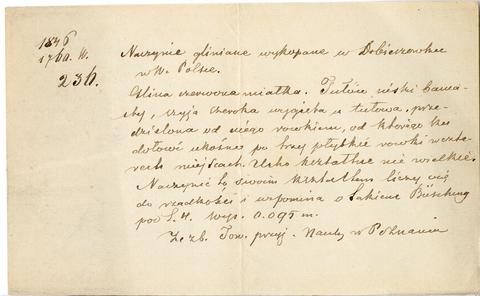 1846
1760. W.
236.
Naczynie gliniane wykopane w Dobieszewku
w W. Polsce.
Glina czerwona miałka. Tułów niski bania-
sty, szyja szeroka wygięta u tułowa, prze-
dzielona od niego rowkiem, od którego ku
dołowi ukośnie po trzy płytkie rowki w czte-
rech miejscach. Ucho kształtne nie wielkie.
Naczynie to swoim kształtem liczy się
do rzadkości i wspomina o takiem Büsching
pod L. 4. wys. 0.095 m.
Ze zb. Tow. przyj. Nauk w Poznaniu